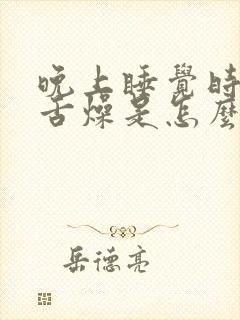 晚上睡覺時
舌燥是怎麼
岳德亮